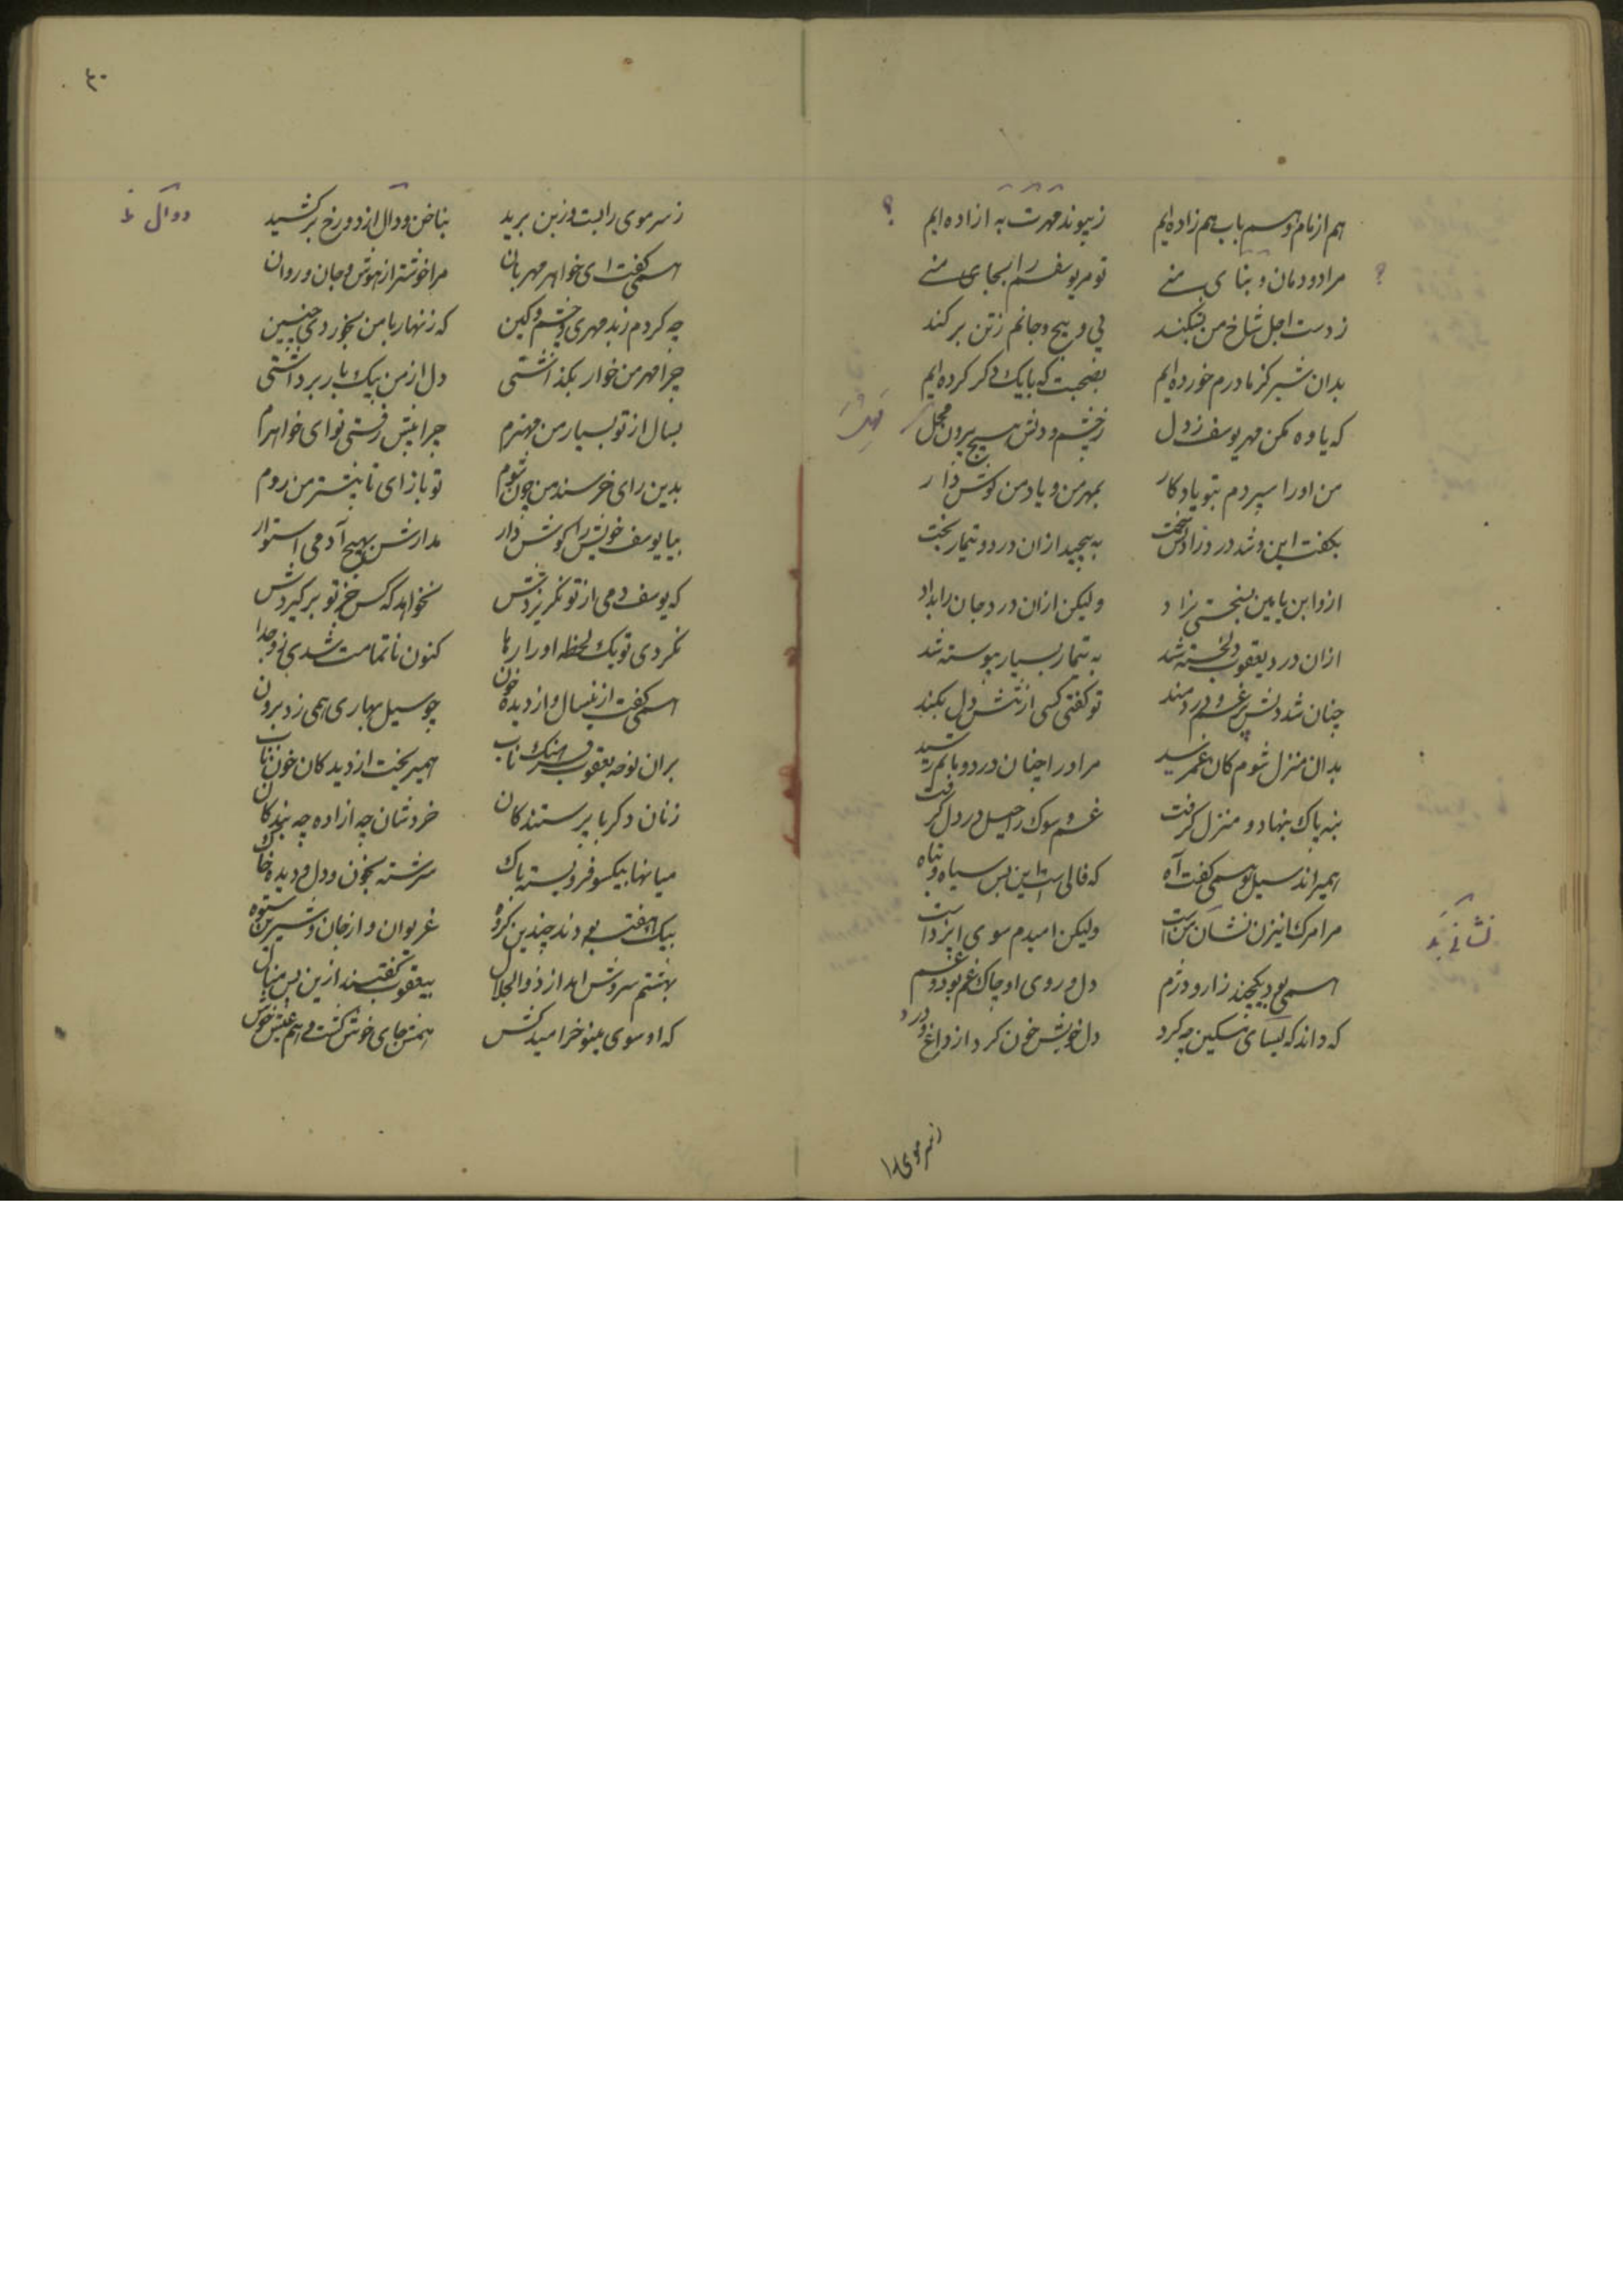 هم از مام و هم باب هم زاده‌ایم ز پیوند مهرت به ازاده‌ایم
مرا دودمان و بنای منی تو مر یوسفم را بجای منی
ز دست اجل شاخ من بشکند پی و بیخ و جانم ز تن برکند
بدان شیر کز مادرم خورده‌ایم بصحبت که با یک دگر کرده‌ایم
که یاوه مکن مهر یوسف ز دل ز چشم و دلش هیچ بیرون مهل
من او را سپردم بتو یادکار بمهر من و یاد من کوش دار
بکفت این و شد درد زادنش سخت به پیچید ازان درد و تیمار بخت
ازو ابن یامین بسختی بزاد ولیکن ازان درد جان را بداد
ازان درد یعقوب دلخسته شد به تیمار بسیار پیوسته شد
چنان شد دلش پر غم و دردمند تو کفتی کسی از تنش دل بکند
بدان منزل شوم کان غم رسید مر او را چنان درد و ماتم رسید
بنه پاک بنهاد و منزل کرفت غم و سوک راحیل در دل کرفت
همیراند سیل و همی کفت آه که فالی است این بس سیاه و تباه
مرا مرک این زن نشان بدست ولیکن امیدم سوی ایزدست
همی بود یکچند زار و دژم دل و روی او چاک غم بود و نم
که داند که لیسای مسکین چه کرد دل خویش خون کرد از داغ و درد
نشانی بد
ز سر موی را
۴۰
ز سر موی را بست و ز بن برید بناخن دوال از دو رخ برکشید
همی کفت ای خواهر مهربان مرا خوشتر از هوش و جان و روان
چه کردم ز بدمهری و خشم و کین که زنهار با من بخوردی چنین
چرا مهر من خوار بکذاشتی دل از من بیک بار برداشتی
بسال از تو بسیار من مهترم چرا پیش رفتی تو ای خواهرم
بدین رای خرسند من چون شوم تو باز ای تا پیشتر من روم
بیا یوسف خویش را کوش دار مدارش بهیچ آدمی استوار
که یوسف دمی از تو نکریزدش نخواهد که کس جز تو برکیردش
نکردی تو یک لحظه او را رها کنون تا قیامت شدی زو جدا
همی کفت ازینسان و از دیده خون چو سیل بهاری همی زد برون
بران نوحه یعقوب فرهنک یاب همیریخت از دیدکان خون ناب
زنان دکر با پرستندکان خردشان چه ازاده چه بندکان
میانها بیکسو فرو بسته پاک سرشته بخون دل و دیده خاک
بیک هفته بودند چندین کروه غریوان و از جان شیرین ستوه
بهشتم سروش امد از ذوالجلال بیعقوب کفتند ازین پس منال
که او سوی مینو خرامید کش همش جای خوش کشت و هم عیش خوش
دوال ظ